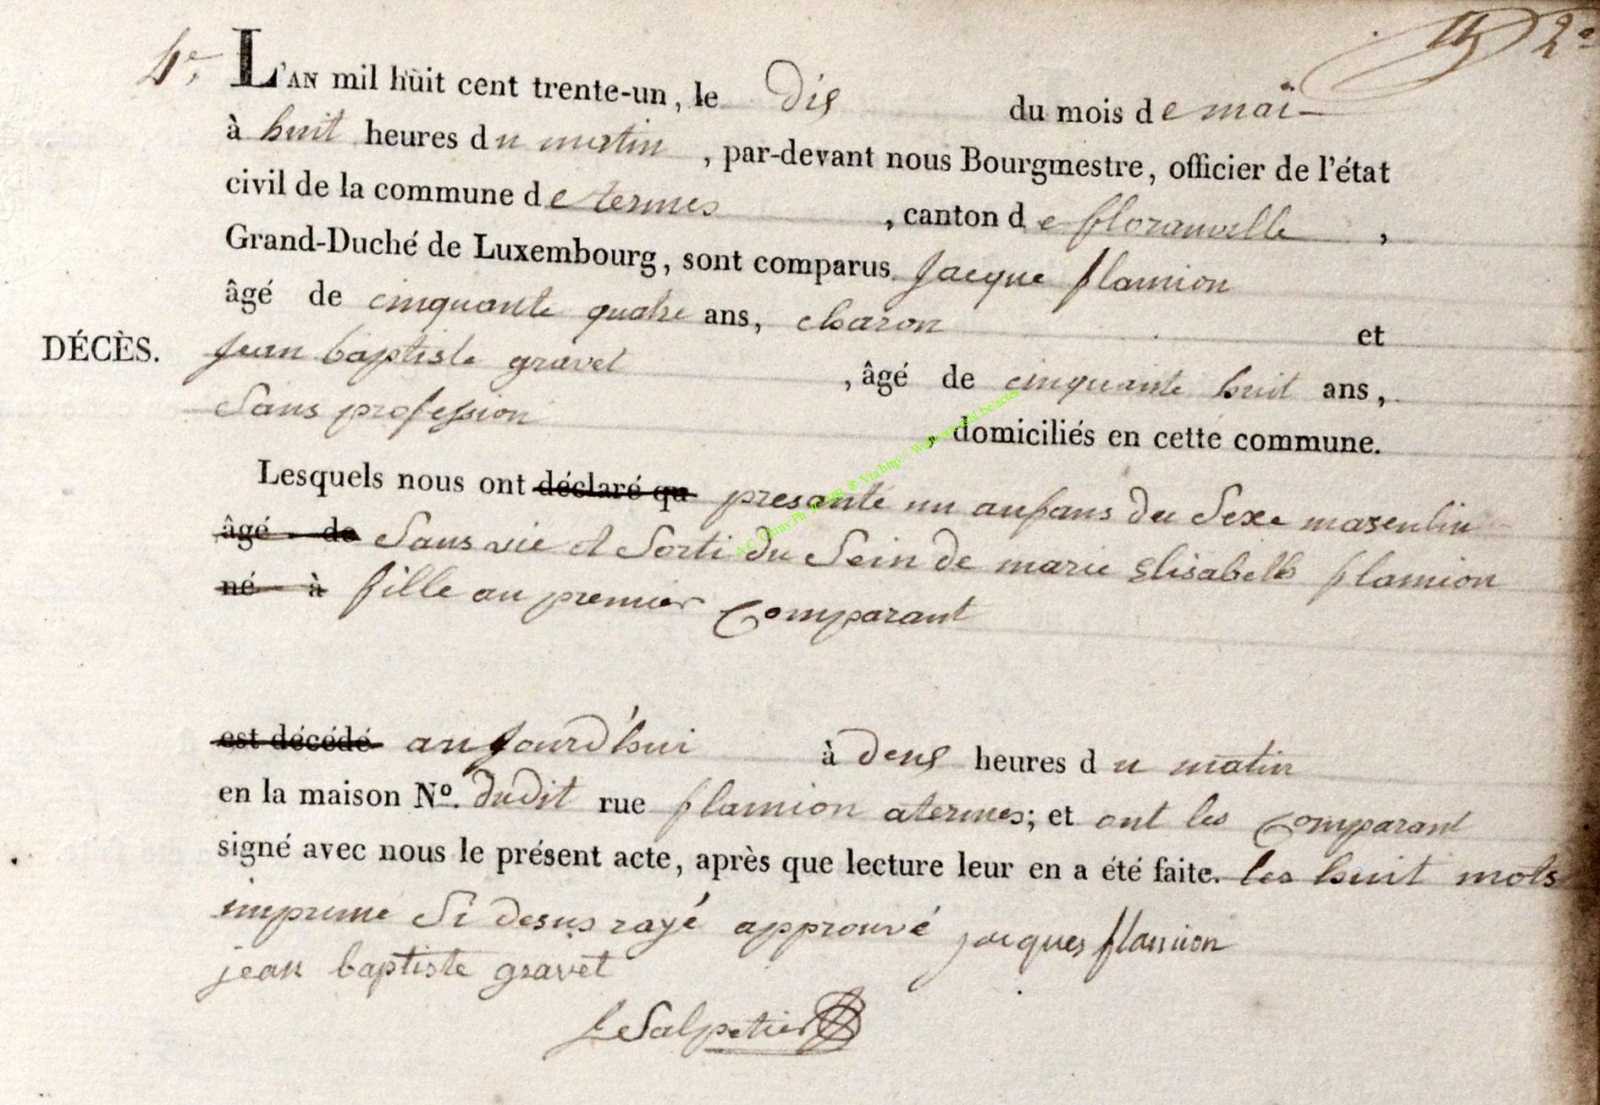 4e. L'AN mil huit cent trente-un, le dix du mois de mai
à huit heures du matin, par-devant nous Bourgmestre, officier de l'état
civil de la commune de termes, canton de floranville,
Grand-Duché de Luxembourg, sont comparus jacque flamion
âgé de cinquante quatre ans, charon et
DÉCÈS. jean baptiste gravet, âgé de cinquante huit ans,
Sans profession, domiciliés en cette commune.
Lesquels nous ont déclaré qu presanté un anfans du Sexe masculin
âgé de Sans vie et Sorti du Sein de marie Elisabeth flamion
né à fille au premier Comparant
est décédé aujourd'hui à deux heures du matin
en la maison Nº. dudit rue flamion atermes; et ont les Comparant
signé avec nous le présent acte, après que lecture leur en a été faite. les huit mots
imprimé Si desus rayé approuvé jacques flamion
jean baptiste gravet
Salpetier